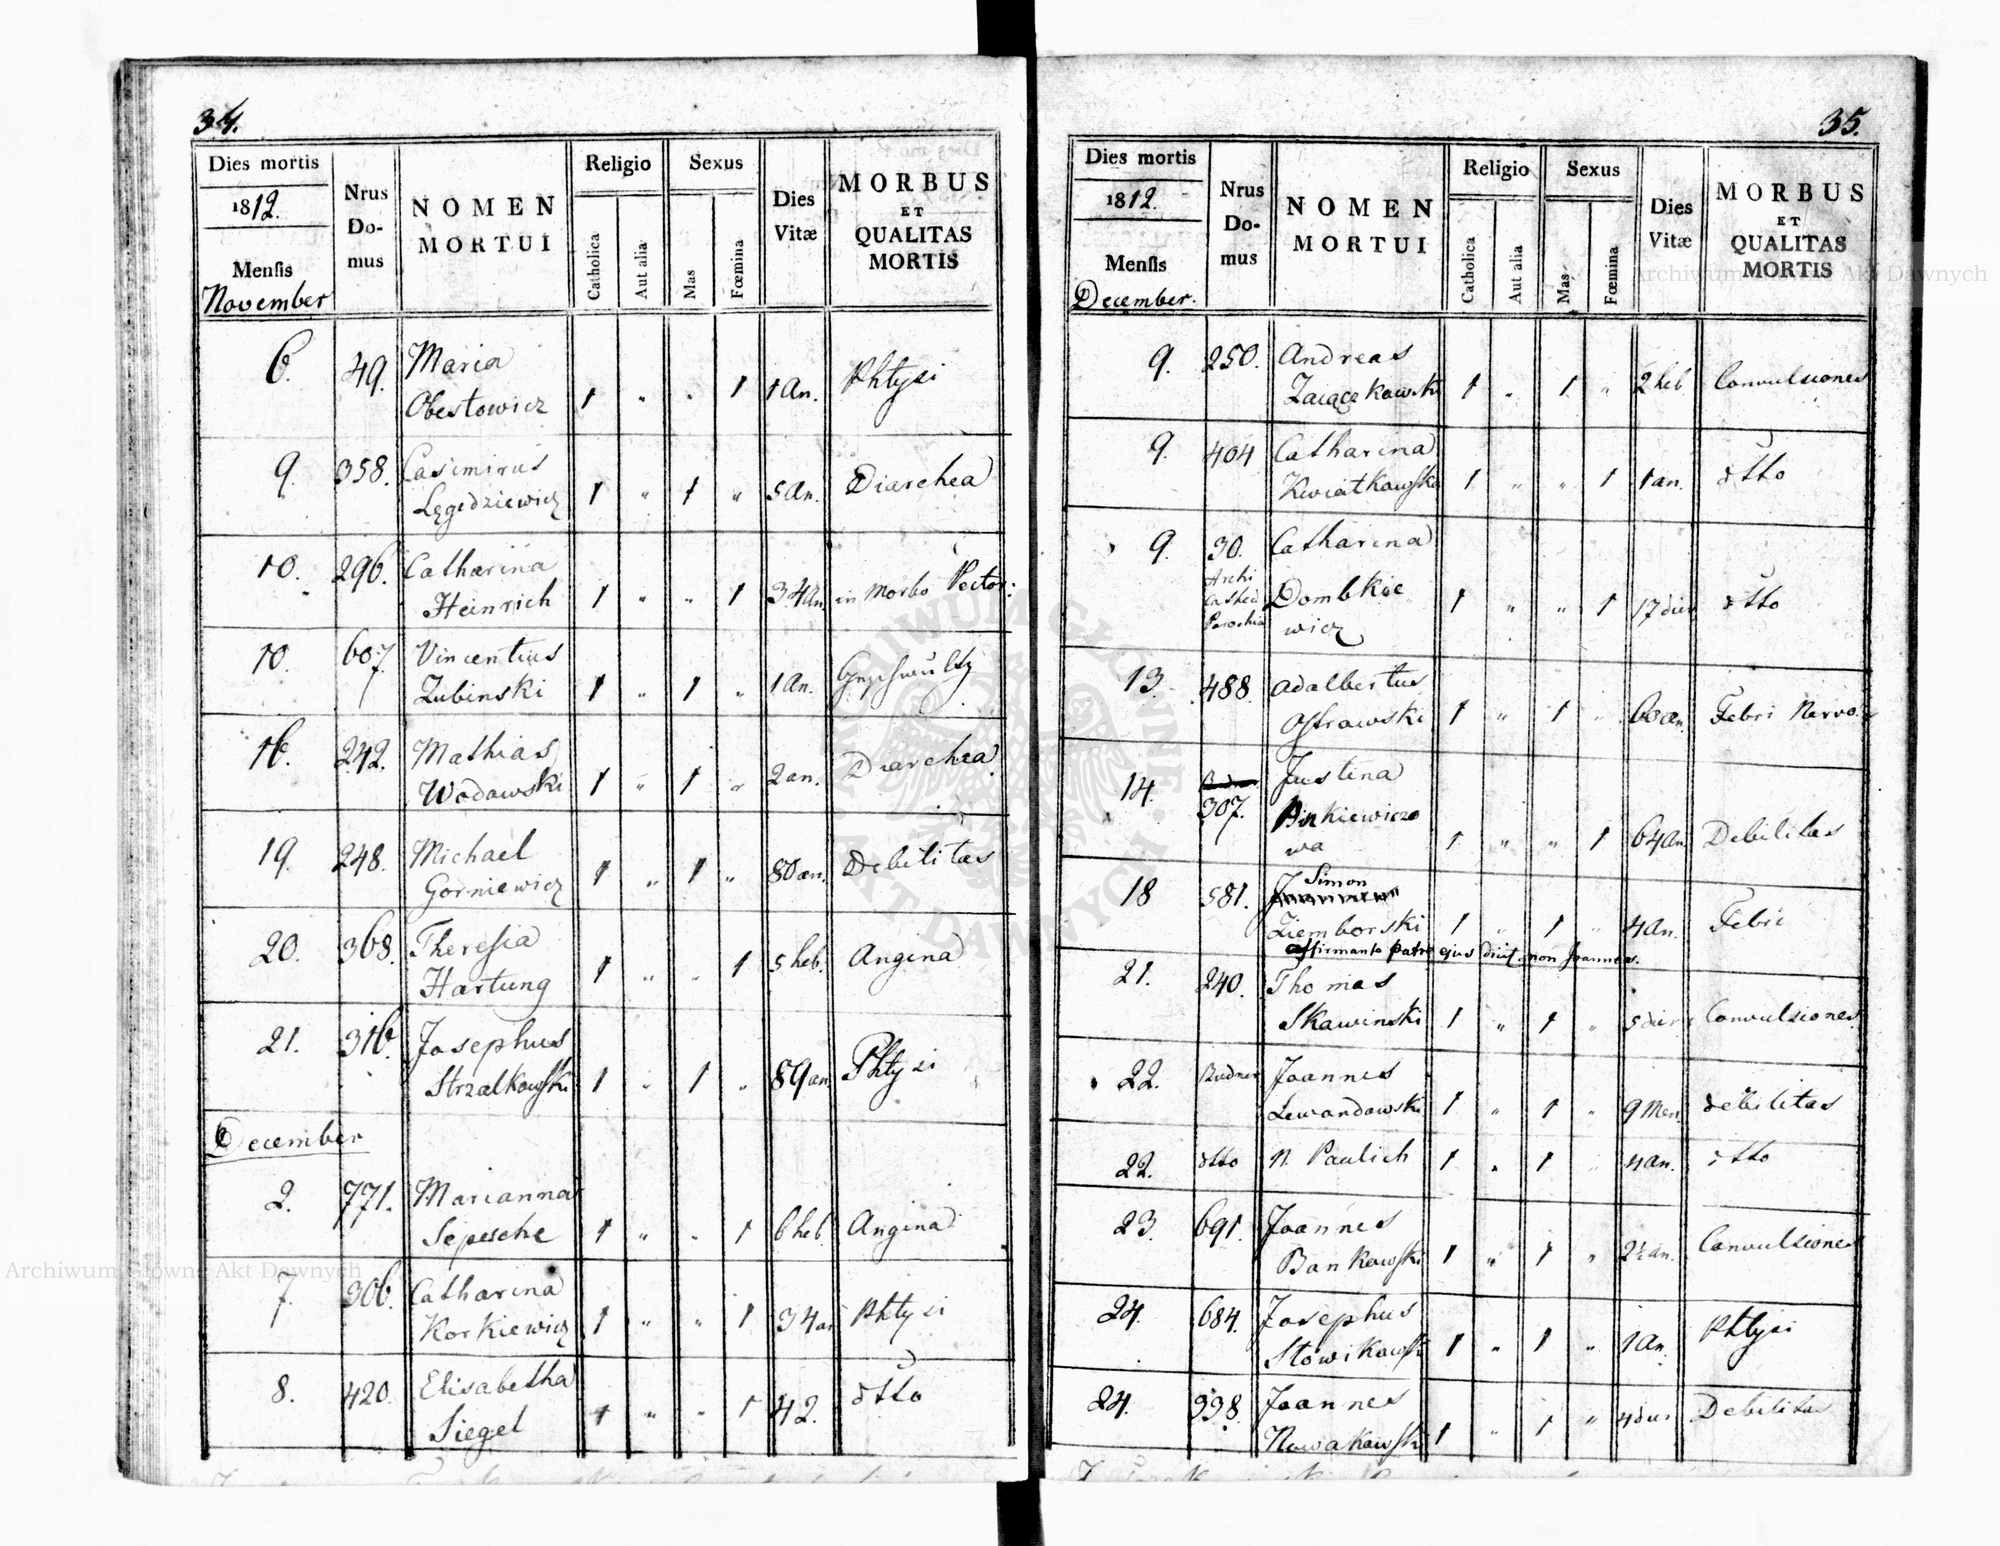 34.
Dies mortis
1812.
Mensis
November
Nrus Do-
mus
NOMEN
MORTUI
Religio
Catholica
Aut alia
Sexus
Mas
Fœmina
Dies
Vitæ
MORBUS
ET
QUALITAS
MORTIS
6. 49. Maria
Obestowicz 1 " " 1 1 An. Phtysi
9. 358. Casimirus
Lęgedziewicz 1 " 1 " 5 An. Diarchea
10. 296. Catharina
Heinrich 1 " " 1 34 An. in Morbo Pector:
10. 607. Vincentius
Zubinski 1 " 1 " 1 An.
16. 242. Mathias
Wodawski 1 " 1 " 2 an. Diarchea
19. 248. Michael
Gorniewicz 1 " 1 " 80 an. Debilitas
20. 368. Theresia
Hartung 1 " " 1 5 heb. Angina
21. 316. Josephus
Strzalkowski 1 " 1 " 89 an. Phtysi
December
2. 771. Marianna
Sepesche 1 " " 1 6 heb. Angina
7. 306. Catharina
Korkiewicz 1 " " 1 34 an Phtysi
8. 420. Elisabetha
Siegel 1 " " 1 42. dtto
35.
Dies mortis
1812.
Mensis
December.
Nrus
Do-
mus
NOMEN
MORTUI
Religio
Catholica
Aut alia
Sexus
Mas
Fœmina
Dies
Vitæ
MORBUS
ET
QUALITAS
MORTIS
9. 250. Andreas
Zaiączkowski 1 " 1 " 2 heb Convulsiones
9. 404 Catharina
Kwiatkowska 1 " " 1 1 an. dtto
9. 30. Catharina
Archi
Cathed
Parochia
Dombkie
wicz 1 " " 1 17 dier dtto
13. 488. Adalbertus
Ostrowski 1 " 1 " 60 an. Febri Nervo.
14. 307. Justina
Binkiewiczo
wa 1 " " 1 64 An Debilitas
18 581. Simon
Ziemborski 1 " 1 " 4 an. Febri
affirmante patre ejus fuit non Joannes.
21. 240. Thomas
Skawinski 1 " 1 " 5 dier Convulsiones
22. Budner Joannes
Lewandowski 1 " 1 " 9 Men. debilitas
22. dtto N. Paulich 1 " 1 " 4 an. dtto
23. 691. Joannes
Bankowski 1 " 1 " 2½ an. Convulsiones
24. 684. Josephus
Słowikowski 1 " 1 " 1 An. Phtysi
24. 338. Joannes
Nowakowski 1 " 1 " 4 dier Debilitas
Archiwum Główne Akt Dawnych
Archiwum Główne Akt Dawnych
ARCHIWUM GŁÓWNE AKT DAWNYCH